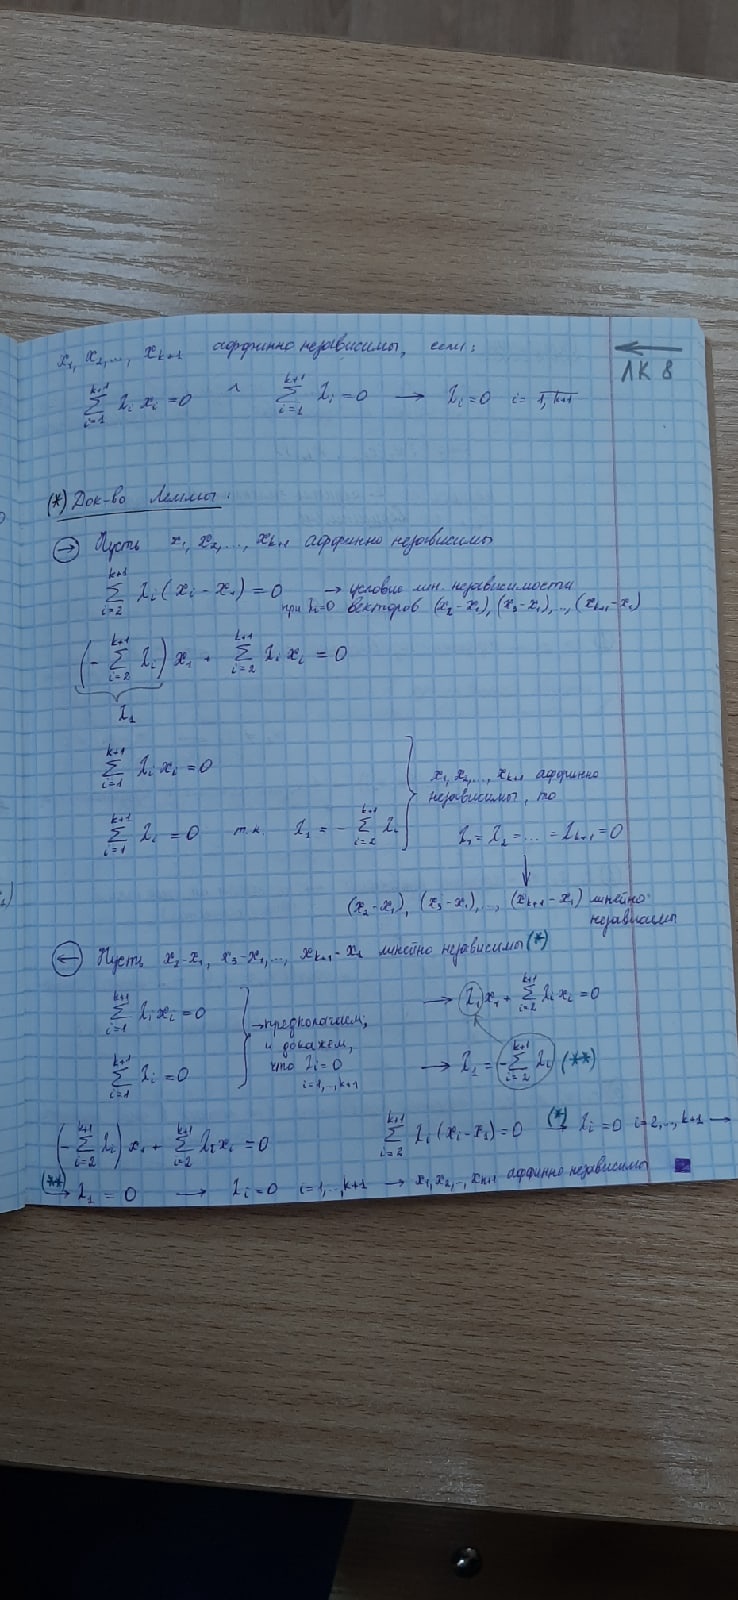 x₁, x₂, ..., xₖ₊₁ аффинно независимы, если:
ЛК 8
∑_{i=1}^{k+1} λᵢxᵢ = 0 ^ ∑_{i=1}^{k+1} λᵢ = 0 → λᵢ = 0 i = \overline{1, k+1}
(*) Док-во Леммы:
(→) Пусть x₁, x₂, ..., xₖ₊₁ аффинно независимы
∑_{i=2}^{k+1} λᵢ(xᵢ - x₁) = 0 → условие лин. независимости
при λᵢ=0 векторов (x₂-x₁), (x₃-x₁), ..., (xₖ₊₁-x₁)
(-∑_{i=2}^{k+1} λᵢ) x₁ + ∑_{i=2}^{k+1} λᵢxᵢ = 0
λ₁
∑_{i=1}^{k+1} λᵢxᵢ = 0
∑_{i=1}^{k+1} λᵢ = 0 т.к. λ₁ = -∑_{i=2}^{k+1} λᵢ
x₁, x₂, ..., xₖ₊₁ аффинно
независимы, то
λ₁ = λ₂ = ... = λₖ₊₁ = 0
↓
(x₂-x₁), (x₃-x₁), ..., (xₖ₊₁-x₁) линейно
независимы
(←) Пусть x₂-x₁, x₃-x₁, ..., xₖ₊₁-x₁ линейно независимы (*)
∑_{i=1}^{k+1} λᵢxᵢ = 0
∑_{i=1}^{k+1} λᵢ = 0
→ предполагаем,
и докажем,
что λᵢ=0
i=1,..,k+1
→ λ₁x₁ + ∑_{i=2}^{k+1} λᵢxᵢ = 0
→ λ₁ = -∑_{i=2}^{k+1} λᵢ (**)
(-∑_{i=2}^{k+1} λᵢ) x₁ + ∑_{i=2}^{k+1} λᵢxᵢ = 0 ∑_{i=2}^{k+1} λᵢ(xᵢ-x₁) = 0 (*)→ λᵢ=0 i=2,..,k+1 →
(**)→ λ₁ = 0 → λᵢ=0 i=1,..,k+1 → x₁, x₂, .., xₖ₊₁ аффинно независимы